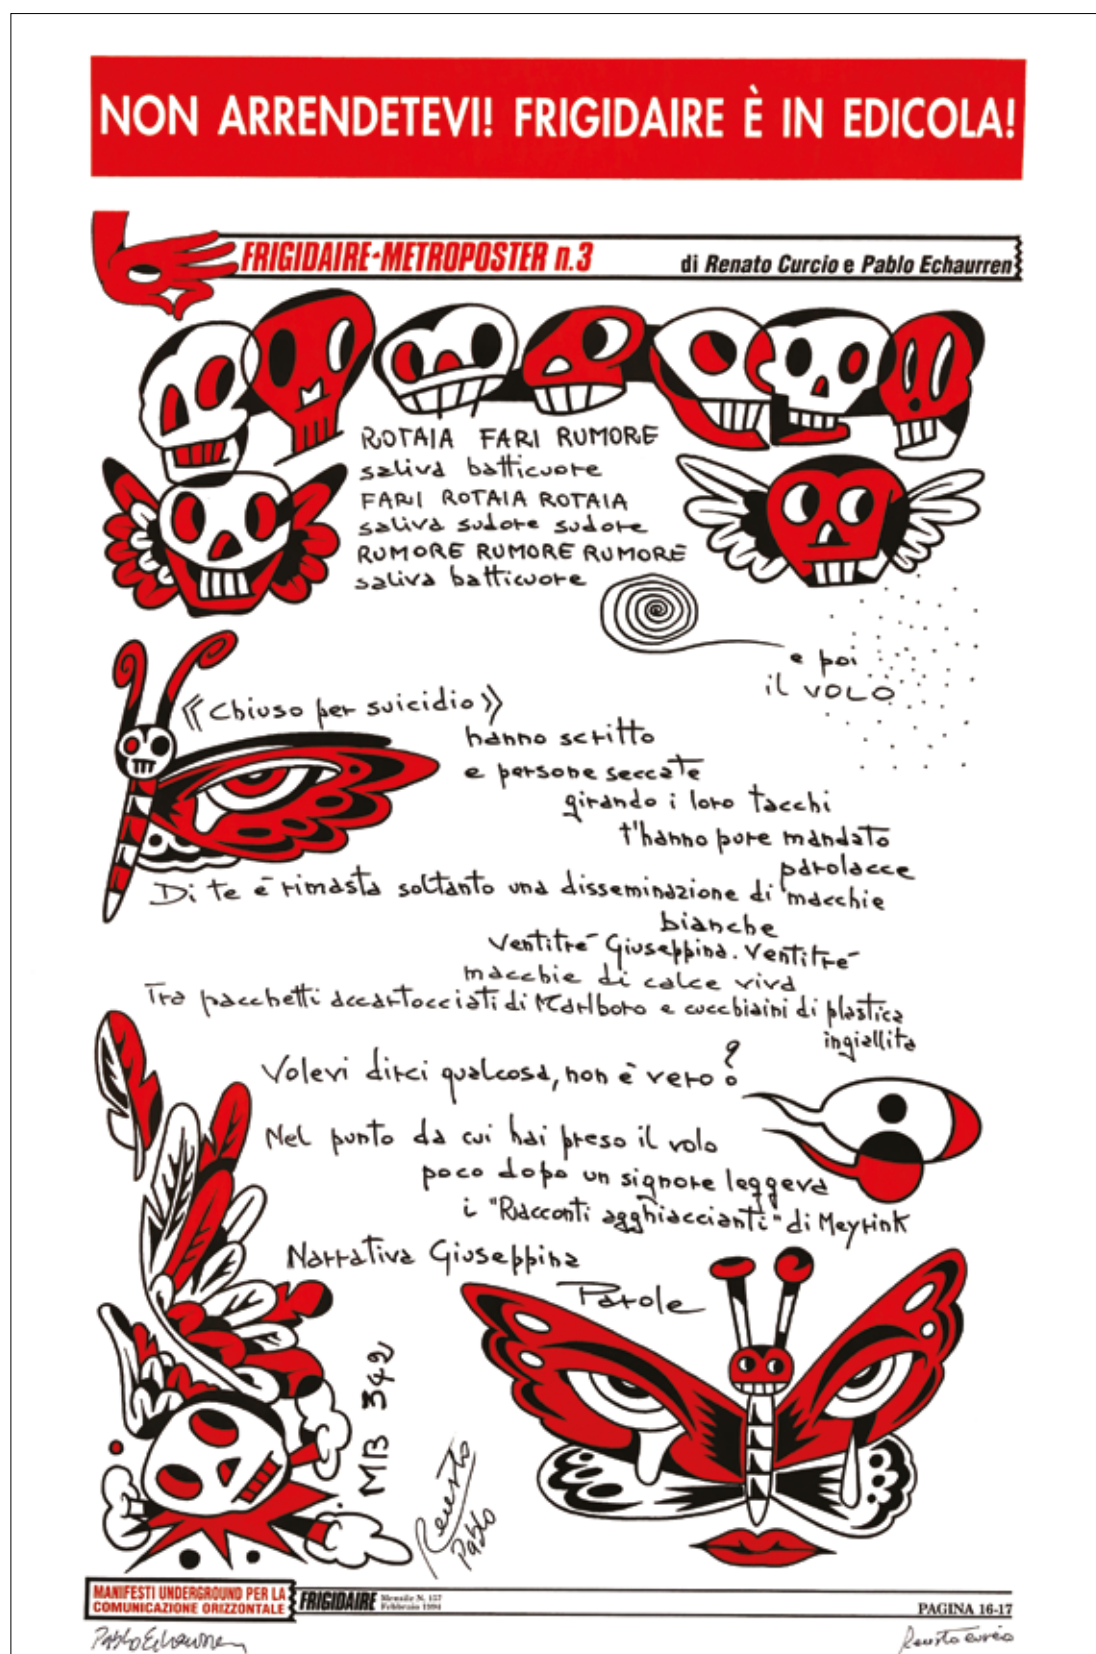 NON ARRENDETEVI! FRIGIDAIRE È IN EDICOLA!
FRIGIDAIRE-METROPOSTER n.3 di Renato Curcio e Pablo Echaurren
ROTAIA FARI RUMORE
saliva batticuore
FARI ROTAIA ROTAIA
saliva sudore sudore
RUMORE RUMORE RUMORE
saliva batticuore
e poi
il VOLO
《Chiuso per suicidio》
hanno scritto
e persone seccate
girando i loro tacchi
t'hanno pure mandato
parolacce
Di te è rimasta soltanto una disseminazione di macchie
bianche
Ventitré Giuseppina. Ventitré
macchie di calce viva
Tra pacchetti accartocciati di Marlboro e cucchiaini di plastica
ingiallita
Volevi dirci qualcosa, non è vero?
Nel punto da cui hai preso il volo
poco dopo un signore leggeva
i "Racconti agghiaccianti" di Meyrink
Narrativa Giuseppina
Parole
MB 342
Renato
Pablo
MANIFESTI UNDERGROUND PER LA
COMUNICAZIONE ORIZZONTALE
FRIGIDAIRE
Mensile N. 157
Febbraio 1994
PAGINA 16-17
Pablo Echaurren
Renato Curcio